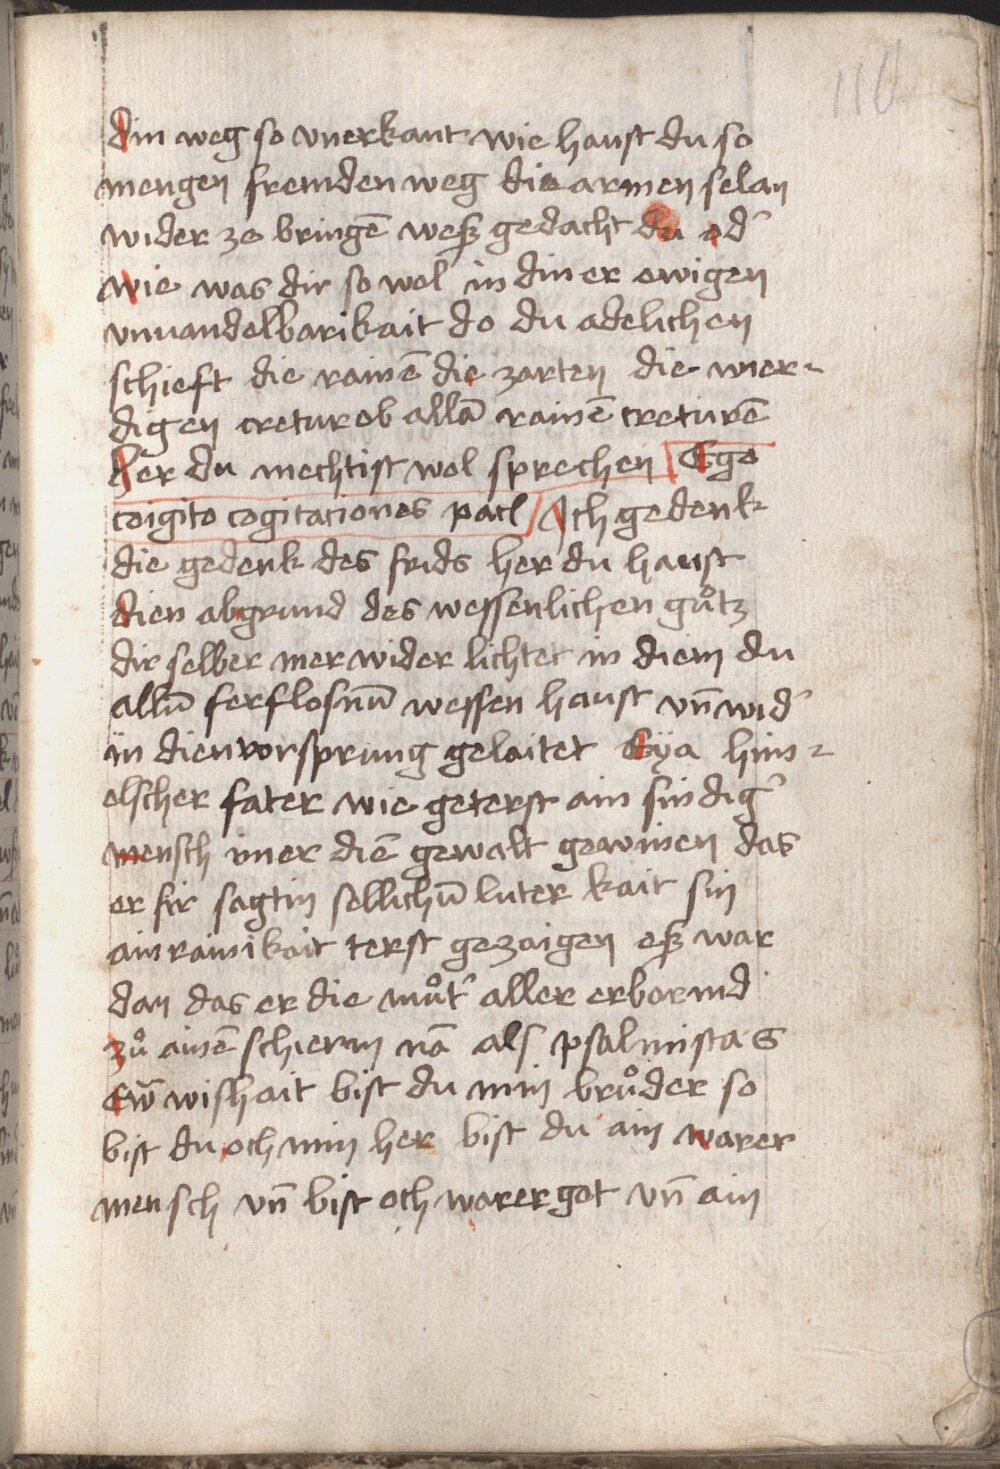 110
din weg so vnerkant wie haust du so
mengen fremden weg die armen selan
wider ze bringē wesz gedacht du od᾽
wie was dir so wol in diner ewigen
vnuandelbarikait do du adelichen
schieft die rainē die zarten die wier-
digen cretur ob allā rainē creturē
her du mechtist wol sprechen Ego
coigito cogitaciones pacl Ich gedenk
die gedenk des frids her du haust
dien abgrund des wessenlichen guͦtz
dir selber mer wider lichtet in diem du
allū ferflosnū wessen haust vn̄ wid᾽
in dien vorsprung gelaitet Eya him-
elscher fater wie geterst ain sindig᾽
mensch imer diē gewalt gewinen das
er fir sagtin sellichū luter kait sin
ainrainikait terst gezaigen esz war
dan das er die muͦt᾽ aller erbarmd
zuͦ ainē schierm nā als psalmistas
Ew̄ wishait bist du min bruͦder so
bist du och min her bist du ain warer
mensch vn̄ bist och warer got vn̄ ain